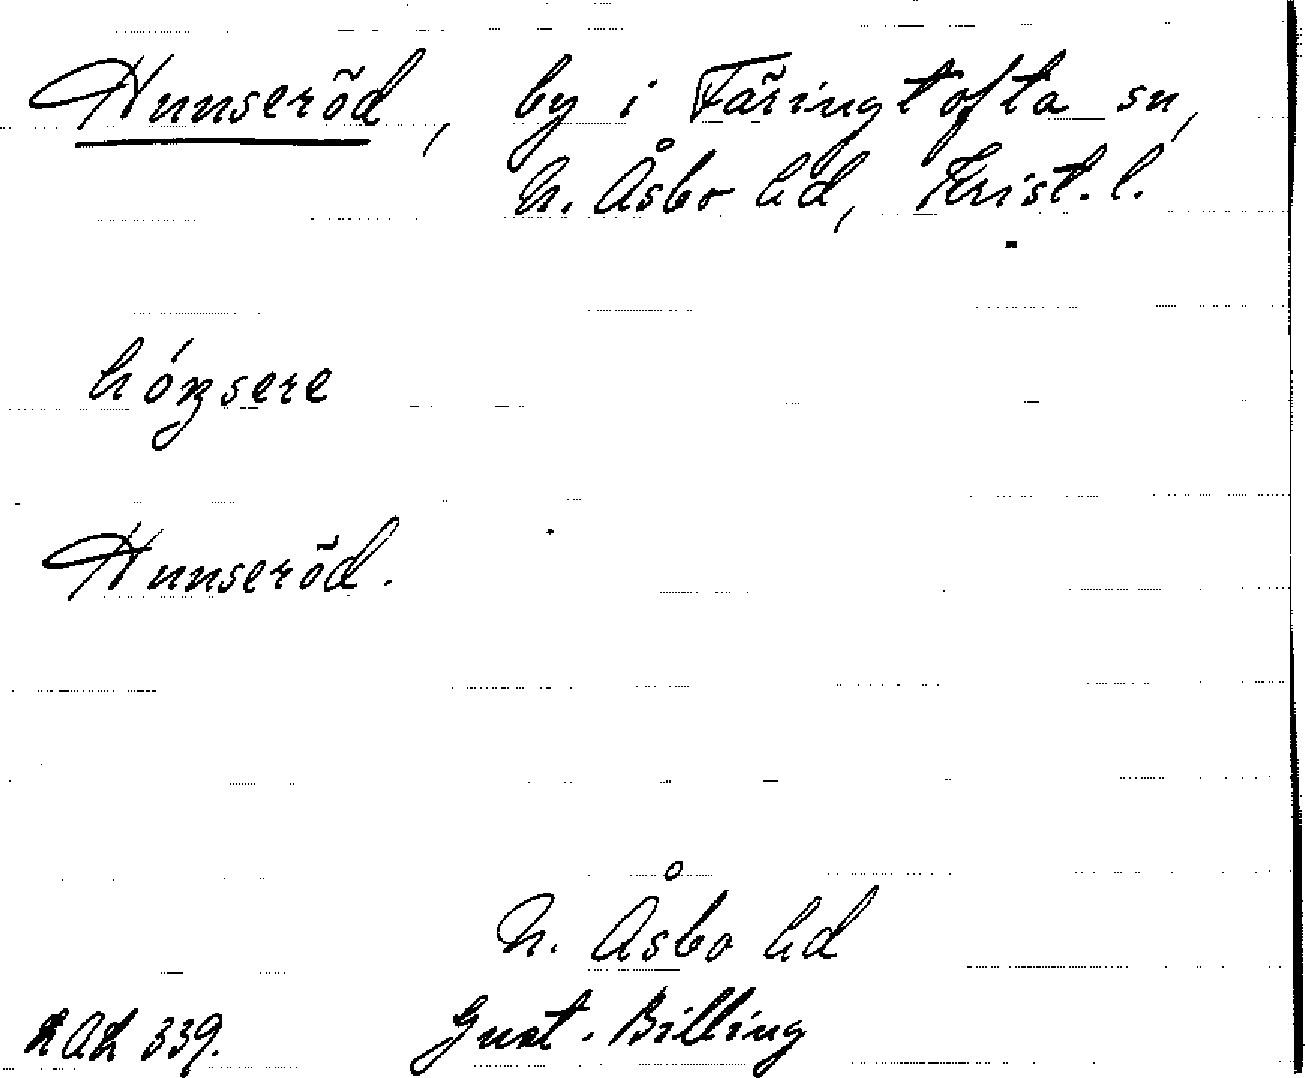 Hunseröd, by i Färingtofta sn,
N. Åsbo hd, Krist. l.
Hunseröd.
N. Åsbo hd
Gust. Billing